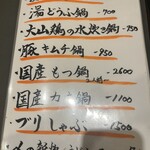 ・湯どうふ鍋 -700
・大山鶏の水炊き鍋 -750
・豚キムチ鍋 -950
・国産もつ鍋 -2600
・国産カモ鍋 -1100
・ブリしゃぶ -1500